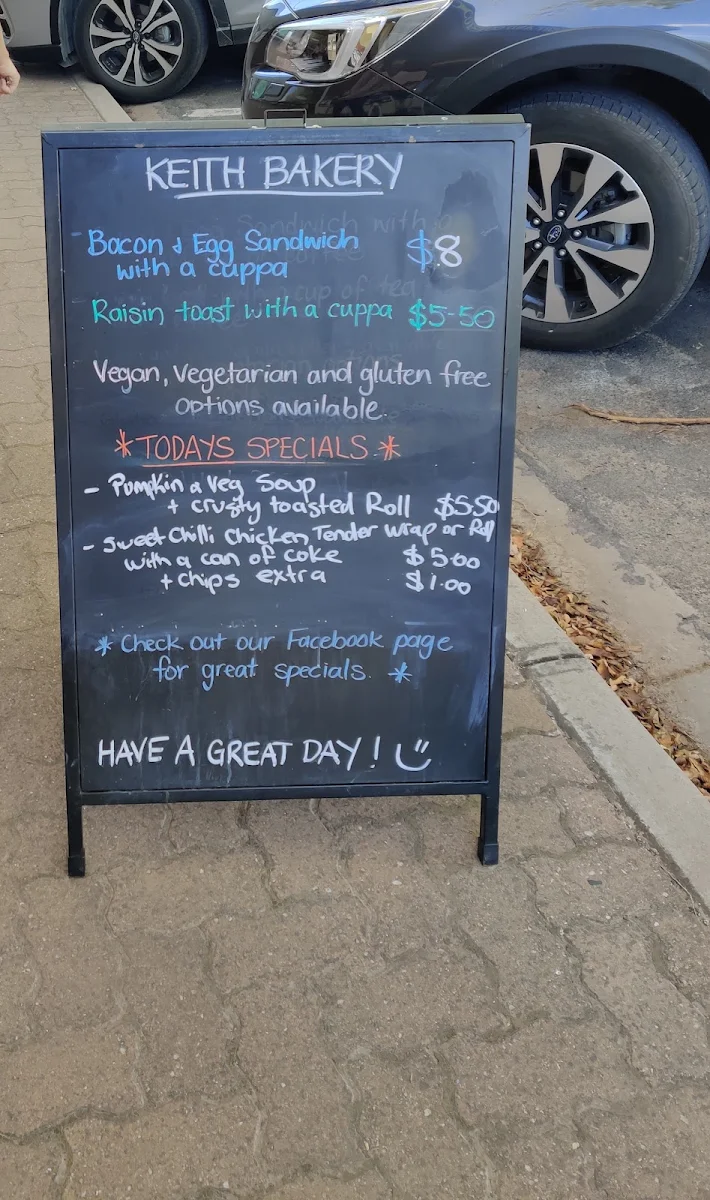 KEITH BAKERY
Bacon & Egg Sandwich $8
with a cuppa
Raisin toast with a cuppa $5-50
Vegan, Vegetarian and gluten free
options available.
*TODAYS SPECIALS.*
- Pumpkin & Veg Soup
+ crusty toasted Roll $5.50
- Sweet Chilli Chicken Tender Wrap or Roll
with a can of coke $5.00
+ chips extra $1.00
* Check out our Facebook page
for great specials. *
HAVE A GREAT DAY!